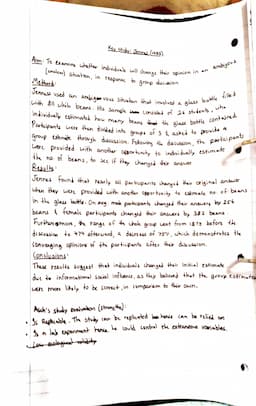 Key study: Jenness (1932)
Aim: To examine whether individuals will change their opinion in an ambiguous
(unclear) situation, in response to group discussion
Method:
Jenness used an ambiguous situation that involved a glass bottle filled
with 811 white beans. His sample consisted of 26 students, who
individually estimated how many beans the glass bottle contained.
Participants were then divided into groups of 3 & asked to provide a
group estimate through discussion. Following the discussion, the participants
were provided with another opportunity to individually estimate
the no of beans, to see if they changed their answer
Results:
Jenness found that nearly all participants changed their original answer
when they were provided with another opportunity to estimate no. of beans
in the glass bottle. On avg male participants changed their answers by 256
beans & female participants changed their answers by 382 beans.
Furthermore, the range of the whole group went from 1875 before the
discussion to 474 afterward, a decrease of 75%, which demonstrates the
converging opinions of the participants after their discussion.
Conclusions:
These results suggest that individuals changed their initial estimate
due to informational social influence, as they believed that the group estimates
were more likely to be correct, in comparison to their own.
Asch's study evaluation (strengths):
• Is Replicable. The study can be replicated hence can be relied on
• Is a lab experiment hence he could control the extraneous variables.
• Low ecological validity